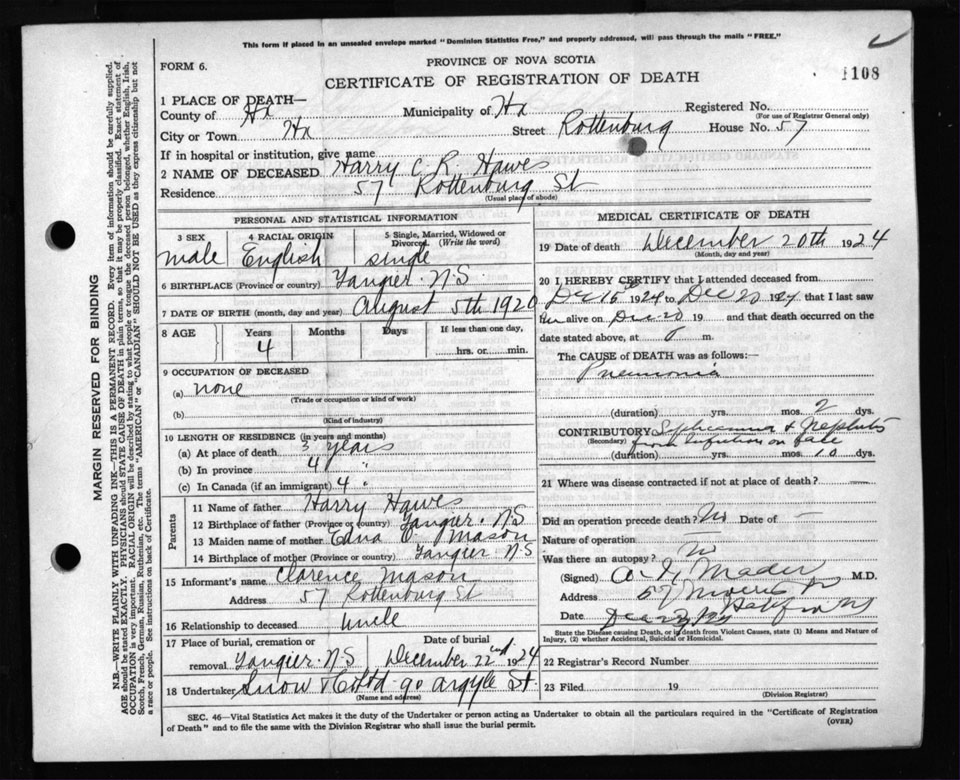 This form if placed in an unsealed envelope marked "Dominion Statistics Free," and properly addressed, will pass through the mails "FREE."
FORM 6.
PROVINCE OF NOVA SCOTIA
CERTIFICATE OF REGISTRATION OF DEATH
1108
1 PLACE OF DEATH—
County of Hx Municipality of Hx Registered No.
(For use of Registrar General only)
City or Town Hx Street Rottenburg House No. 57
If in hospital or institution, give name
2 NAME OF DECEASED Harry C. R. Hawes
Residence 57 Rottenburg St
(Usual place of abode)
PERSONAL AND STATISTICAL INFORMATION
3 SEX 4 RACIAL ORIGIN 5 Single, Married, Widowed or Divorced (Write the word)
male English single
6 BIRTHPLACE (Province or country) Tangier N.S
7 DATE OF BIRTH (month, day and year) August 5th 1920
8 AGE Years Months Days If less than one day,
4 hrs. or min.
9 OCCUPATION OF DECEASED
(a) none
(Trade or occupation or kind of work)
(b)
(Kind of industry)
10 LENGTH OF RESIDENCE (in years and months)
(a) At place of death 3 years
(b) In province 4 "
(c) In Canada (if an immigrant) 4 "
Parents
11 Name of father Harry Hawes
12 Birthplace of father (Province or country) Tangier N.S
13 Maiden name of mother Edna Mason
14 Birthplace of mother (Province or country) Tangier N.S
15 Informant's name Clarence Mason
Address 57 Rottenburg St
16 Relationship to deceased uncle
17 Place of burial, cremation or removal Tangier N.S Date of burial December 22nd 1924
18 Undertaker Snow & Co Ltd 90 Argyle St.
(Name and address)
MEDICAL CERTIFICATE OF DEATH
19 Date of death December 20th 1924
(Month, day and year)
20 I HEREBY CERTIFY that I attended deceased from
Dec 15 1924 to Dec 20 1924 that I last saw
him alive on Dec 20 19 and that death occurred on the
date stated above, at 8 m.
The CAUSE of DEATH was as follows:—
Pneumonia
(duration) yrs. mos. 2 dys.
CONTRIBUTORY Septicaemia & Nephritis
(Secondary) from infection on face
(duration) yrs. mos. 10 dys.
21 Where was disease contracted if not at place of death? —
Did an operation precede death? No Date of —
Nature of operation —
Was there an autopsy? No
(Signed) Mader M.D.
Address 57 Morris St
Date Dec
State the Disease causing Death, or in death from Violent Causes, state (1) Means and Nature of
Injury, (2) whether Accidental, Suicidal or Homicidal.
22 Registrar's Record Number
23 Filed 19
(Division Registrar)
SEC. 46—Vital Statistics Act makes it the duty of the Undertaker or person acting as Undertaker to obtain all the particulars required in the "Certificate of Registration
of Death" and to file the same with the Division Registrar who shall issue the burial permit.
(OVER)
MARGIN RESERVED FOR BINDING
N.B.—WRITE PLAINLY WITH UNFADING INK—THIS IS A PERMANENT RECORD. Every item of information should be carefully supplied.
AGE should be stated EXACTLY. PHYSICIANS should STATE CAUSE OF DEATH in plain terms, so that it may be properly classified. Exact statement of
OCCUPATION is very important. RACIAL ORIGIN will be described by stating to what people or tongue the deceased person belonged, whether English, Irish,
Scotch, French, German, Russian, Ruthenian, etc. The terms "AMERICAN" or "CANADIAN" SHOULD NOT BE USED as they express citizenship but not
a race or people. See instructions on back of Certificate.